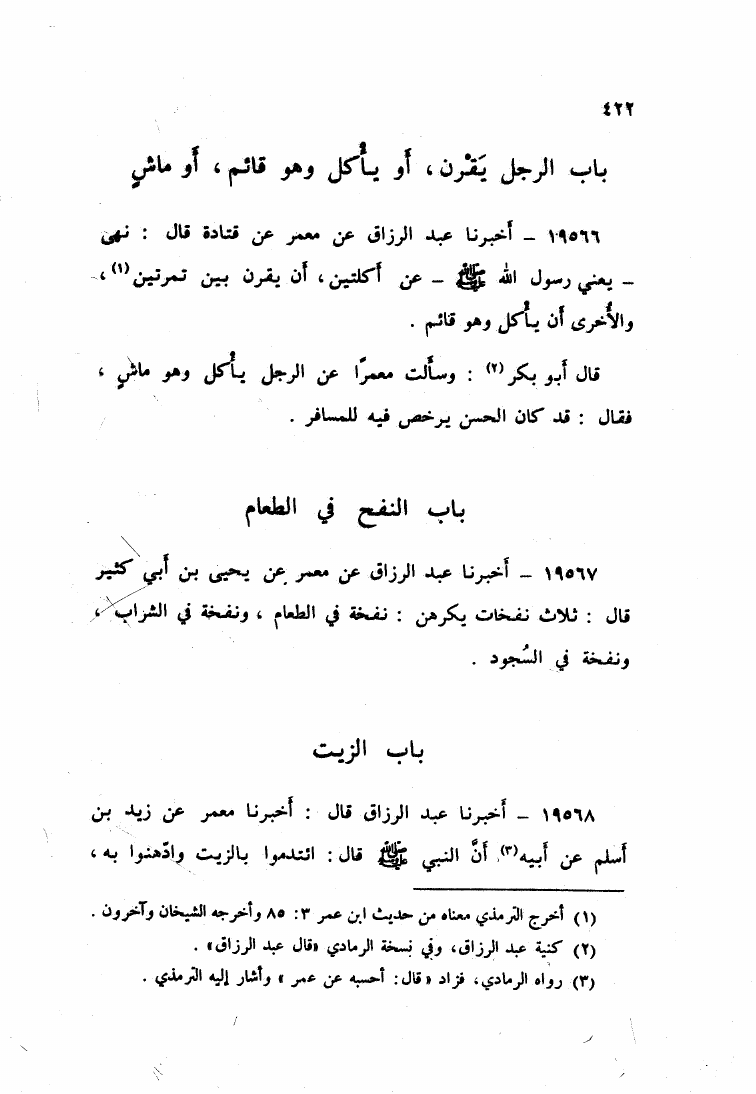 ٤٢٢
باب الرجل يَقْرن، أو يأْكل وهو قائم، أو ماشٍ
١٩٥٦٦ – أخبرنا عبد الرزاق عن معمر عن قتادة قال : نهى
– يعني رسول الله ﷺ – عن أكلتين، أن يقرن بين تمرتين(١)،
والأُخرى أن يأْكل وهو قائم .
قال أبو بكر(٢) : وسأَلت معمرًا عن الرجل يأْكل وهو ماشٍ ،
فقال : قد كان الحسن يرخص فيه للمسافر .
باب النفخ في الطعام
١٩٥٦٧ – أخبرنا عبد الرزاق عن معمر عن يحيى بن أبي كثير
قال : ثلاث نفخات يكرهن : نفخة في الطعام ، ونفخة في الشراب ،
ونفخة في السُجود .
باب الزيت
١٩٥٦٨ – أخبرنا عبد الرزاق قال : أخبرنا معمر عن زيد بن
أسلم عن أبيه(٣) أنَّ النبي ﷺ قال : ائتدموا بالزيت وادّهنوا به ،
(١) أخرج الترمذي معناه من حديث ابن عمر ٣: ٨٥ وأخرجه الشيخان وآخرون .
(٢) كنية عبد الرزاق، وفي نسخة الرمادي «قال عبد الرزاق» .
(٣) رواه الرمادي، فزاد «قال: أحسبه عن عمر» وأشار إليه الترمذي .